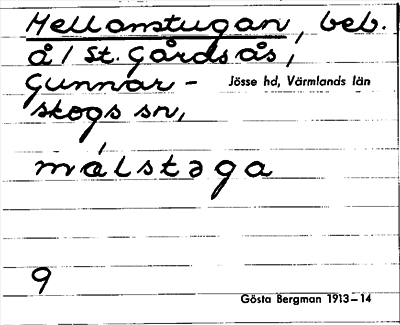 Mellanstugan, beb.
å / St. Gårdsås,
Gunnar-
Jösse hd, Värmlands län
skogs sn,
málstəga
9
Gösta Bergman 1913–14